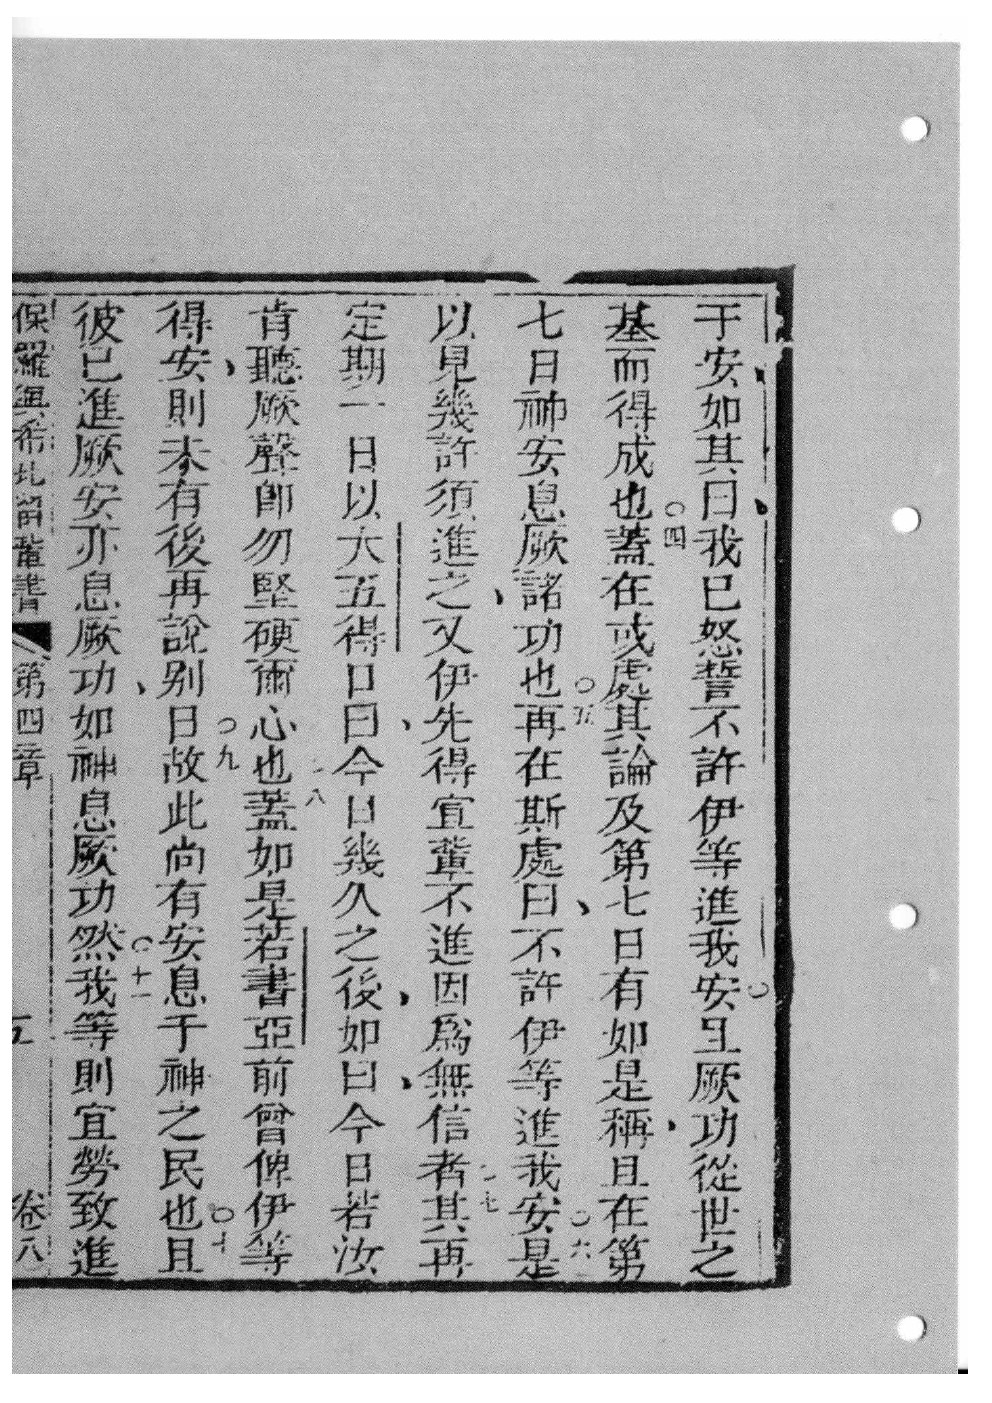 于安、如其曰、我已怒誓不許伊等進我安且厥功從世之
基而得成也○四蓋在或處其論及第七日有如是稱、且在第
七日神安息厥諸功也○五再在斯處曰、不許伊等進我安○六是
以見幾許須進之、又伊先得宣輩不進因爲無信者○七其再
定期一日以大五得口曰、今日幾久之後、如曰、今日若汝
肯聽厥聲卽勿堅硬爾心也○八蓋如是若書亞前曾俾伊等
得安、則未有後再說别日○九故此尚有安息于神之民也○十且
彼已進厥安亦息厥功、如神息厥功○十一然我等則宜勞致進
保羅與希比留輩書 第四章 五 卷八